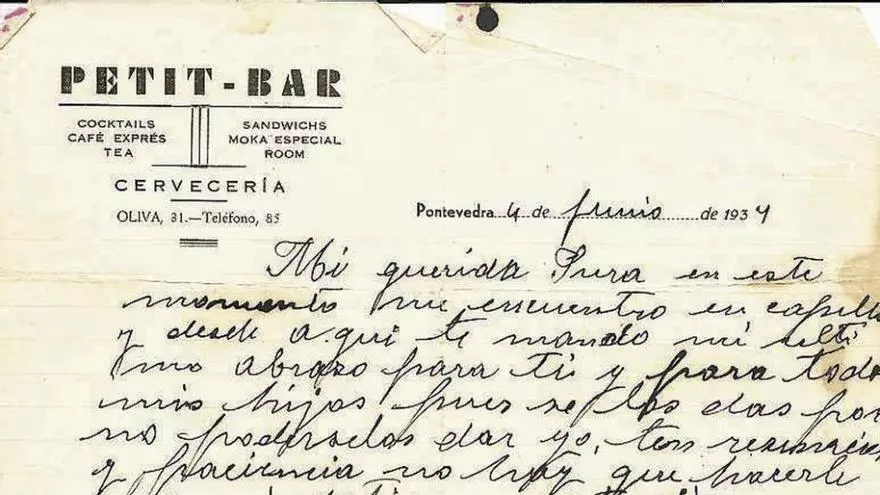 PETIT-BAR
COCKTAILS
CAFÉ EXPRÉS
TEA
SANDWICHS
MOKA ESPECIAL
ROOM
CERVECERÍA
OLIVA, 31.—Teléfono, 85
Pontevedra 4 de Junio de 1937
Mi querida Pura en este
momento me encuentro en capilla
y desde aqui te mando mi ulti
mo abrazo para ti y para todo
mis hijos pues se los das por
no poderselos dar yo, ten
y paciencia no hay que hacerle